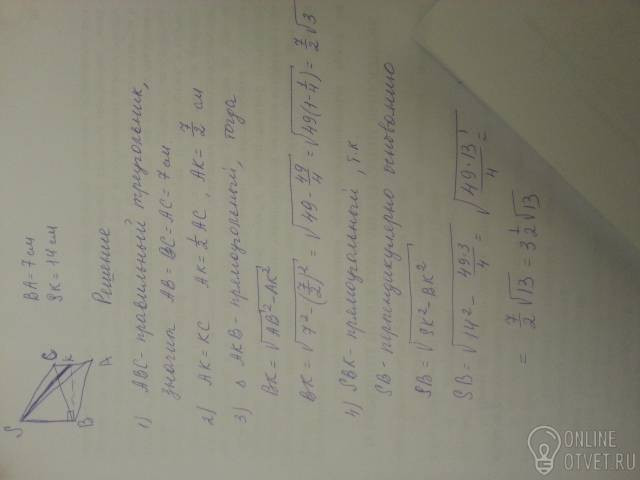 S
C
K
B
A
BA=7см
SK=14см
Решение
1) ABC - правильный треугольник,
значит AB=BC=AC=7см
2) AK=KC AK=½AC, AK=7/2 см
3) △ AKB - прямоугольный, тогда
BK=√(AB²-AK²)
BK=√(7²-(7/2)²)=√(49-49/4)=√(49(1-1/4))=7/2√3
4) SBK - прямоугольный, т.к
SB - перпендикулярно основанию
SB=√(SK²-BK²)
SB=√(14²-49·3/4)=√(49·13/4)=
=7/2√13=3½√13
ONLINE
OTVET.RU